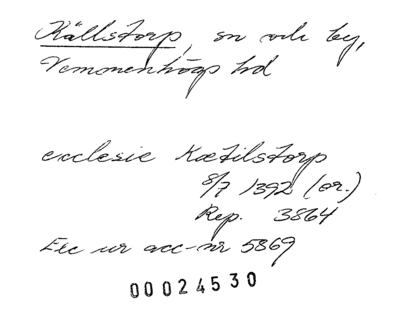 Källstorp, sn och by,
Vemmenhögs hd
ecclesie Kætilstorp
8/7 1392 (or.)
Rep. 3864
Exc ur acc-nr 5869
00024530